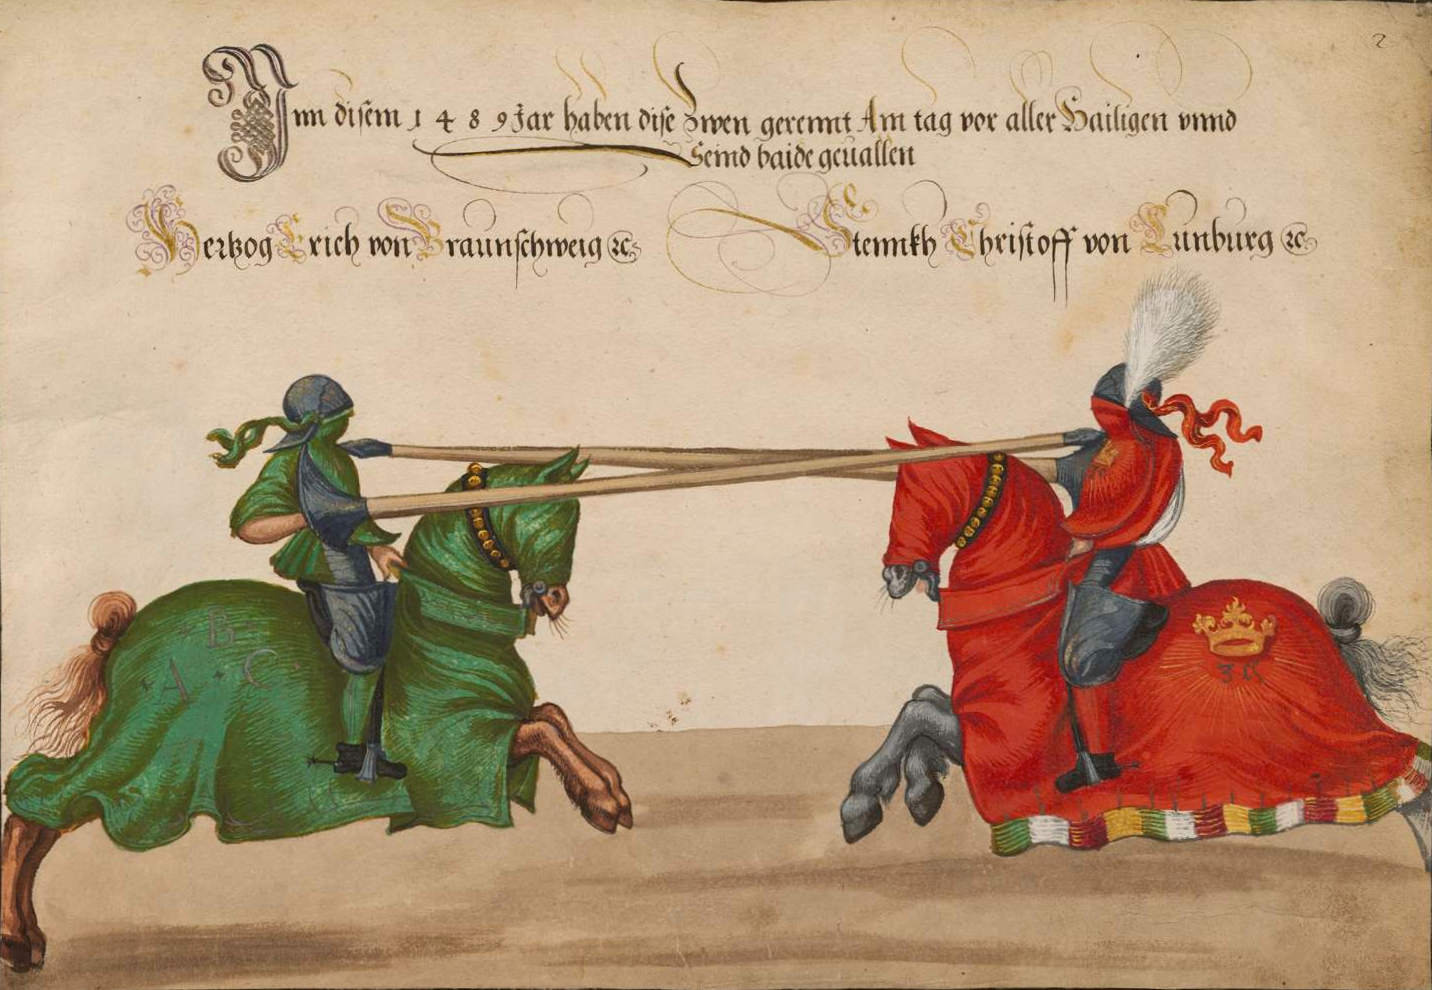 2
Inn disem 1489 Jar haben dise Zwen gerennt Am tag vor aller Hailigen vnnd
Seind baide geuallen
Hertzog Erich von Braunschweig ꝛc Stennkh Christoff von Lunburg ꝛc
B
A C